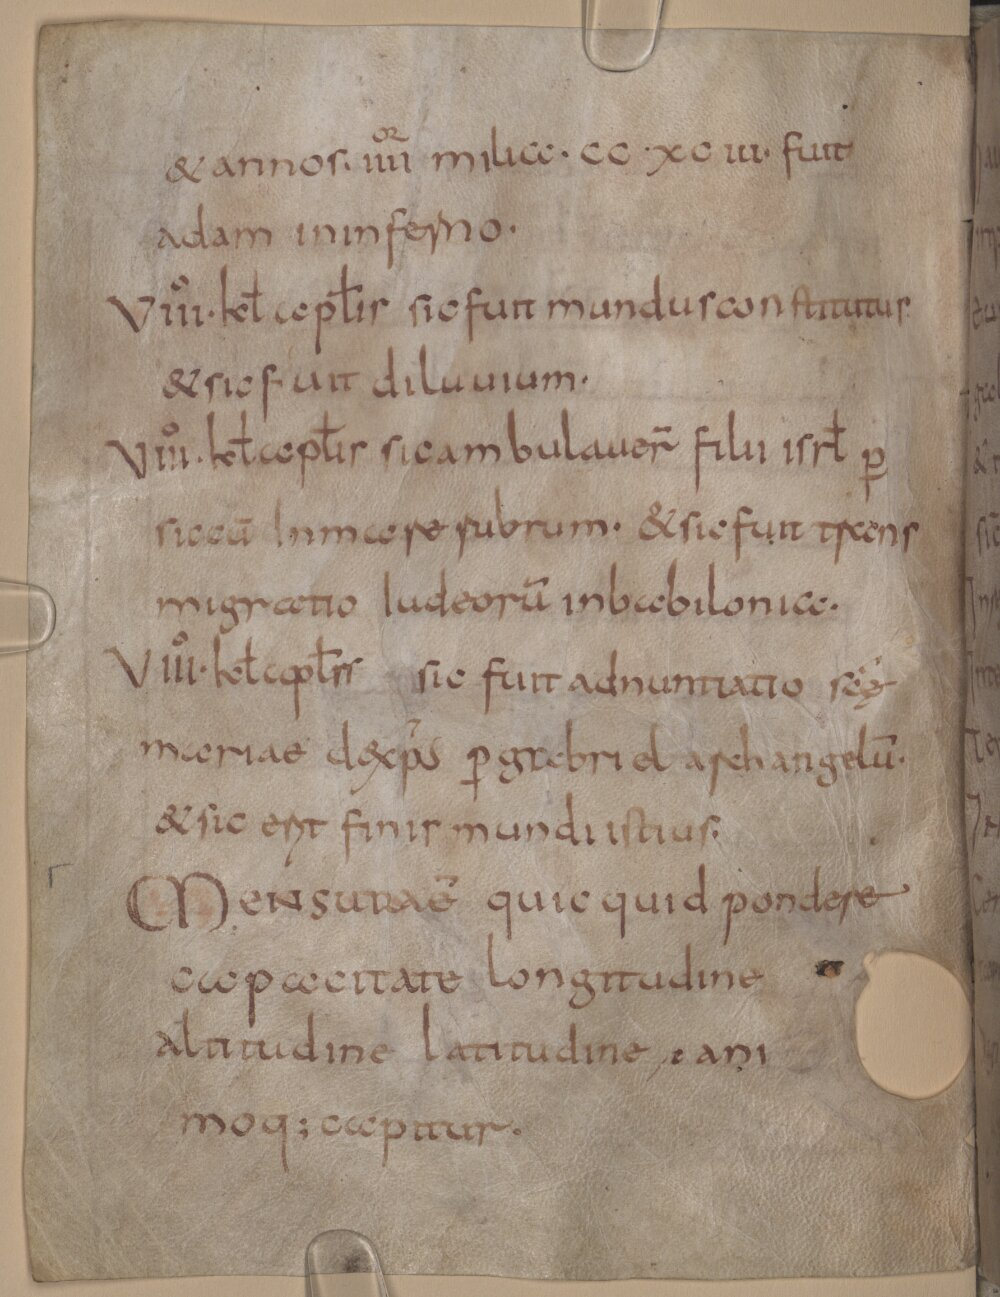 & annos. iiii^or milia. cc. xc iii. fuit
adam in inferno.
Viiii^o. kal̄ apl̄is sic fuit mundus constitutus
& sic fuit diluuium.
Viiii^o. kal̄ apl̄is sic ambulauer̄ filii isrl̄ ꝑ
siccū In mare rubrum. & sic fuit trans
migratio Iudeorū in babilonia.
Viii^o. kal̄ apl̄is sic fuit adnuntiatio
mariae ꝑ gabriel archangelū.
& sic erit finis mundi istius.
Mensura ē quicquid pondere
capacitate longitudine
altitudine latitudine ani
moq; capitur.